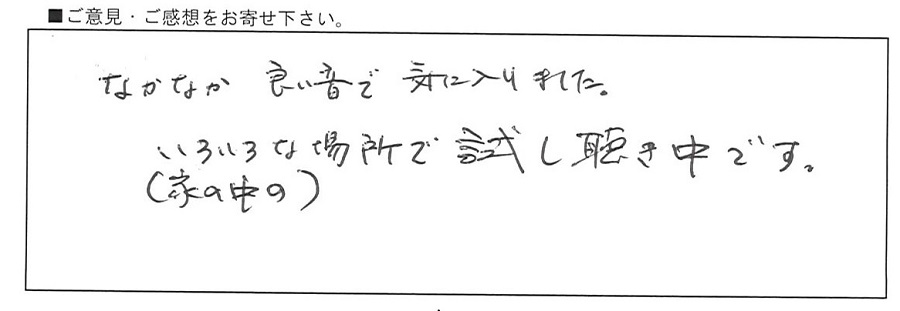 ■ご意見・ご感想をお寄せ下さい。
なかなか 良い音で 気に入りました。
いろいろな場所で試し聴き中です。
(家の中の)